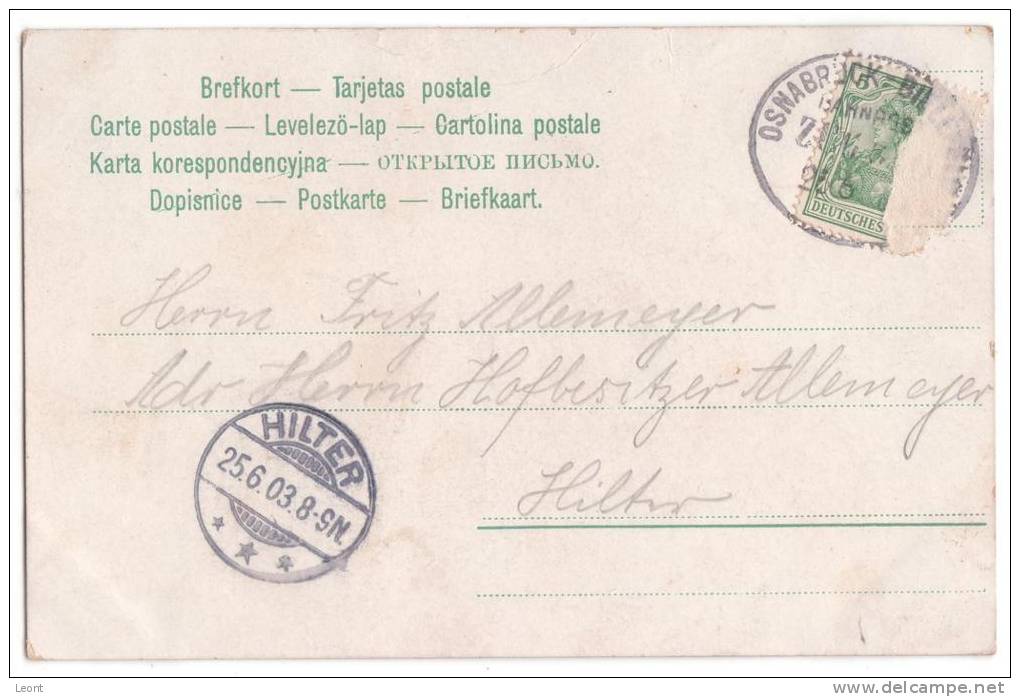 Brefkort — Tarjetas postale
Carte postale — Levelezö-lap — Cartolina postale
Karta korespondencyjna — ОТКРЫТОЕ ПИСЬМО.
Dopisnice — Postkarte — Briefkaart.
OSNABRÜCK
BAHNPOS
5
DEUTSCHES
Herrn Fritz Allemeyer
Adr Herrn Hofbesitzer Allemeyer
Hilter
HILTER
25.6.03.8-9N.
Leont
www.delcampe.net